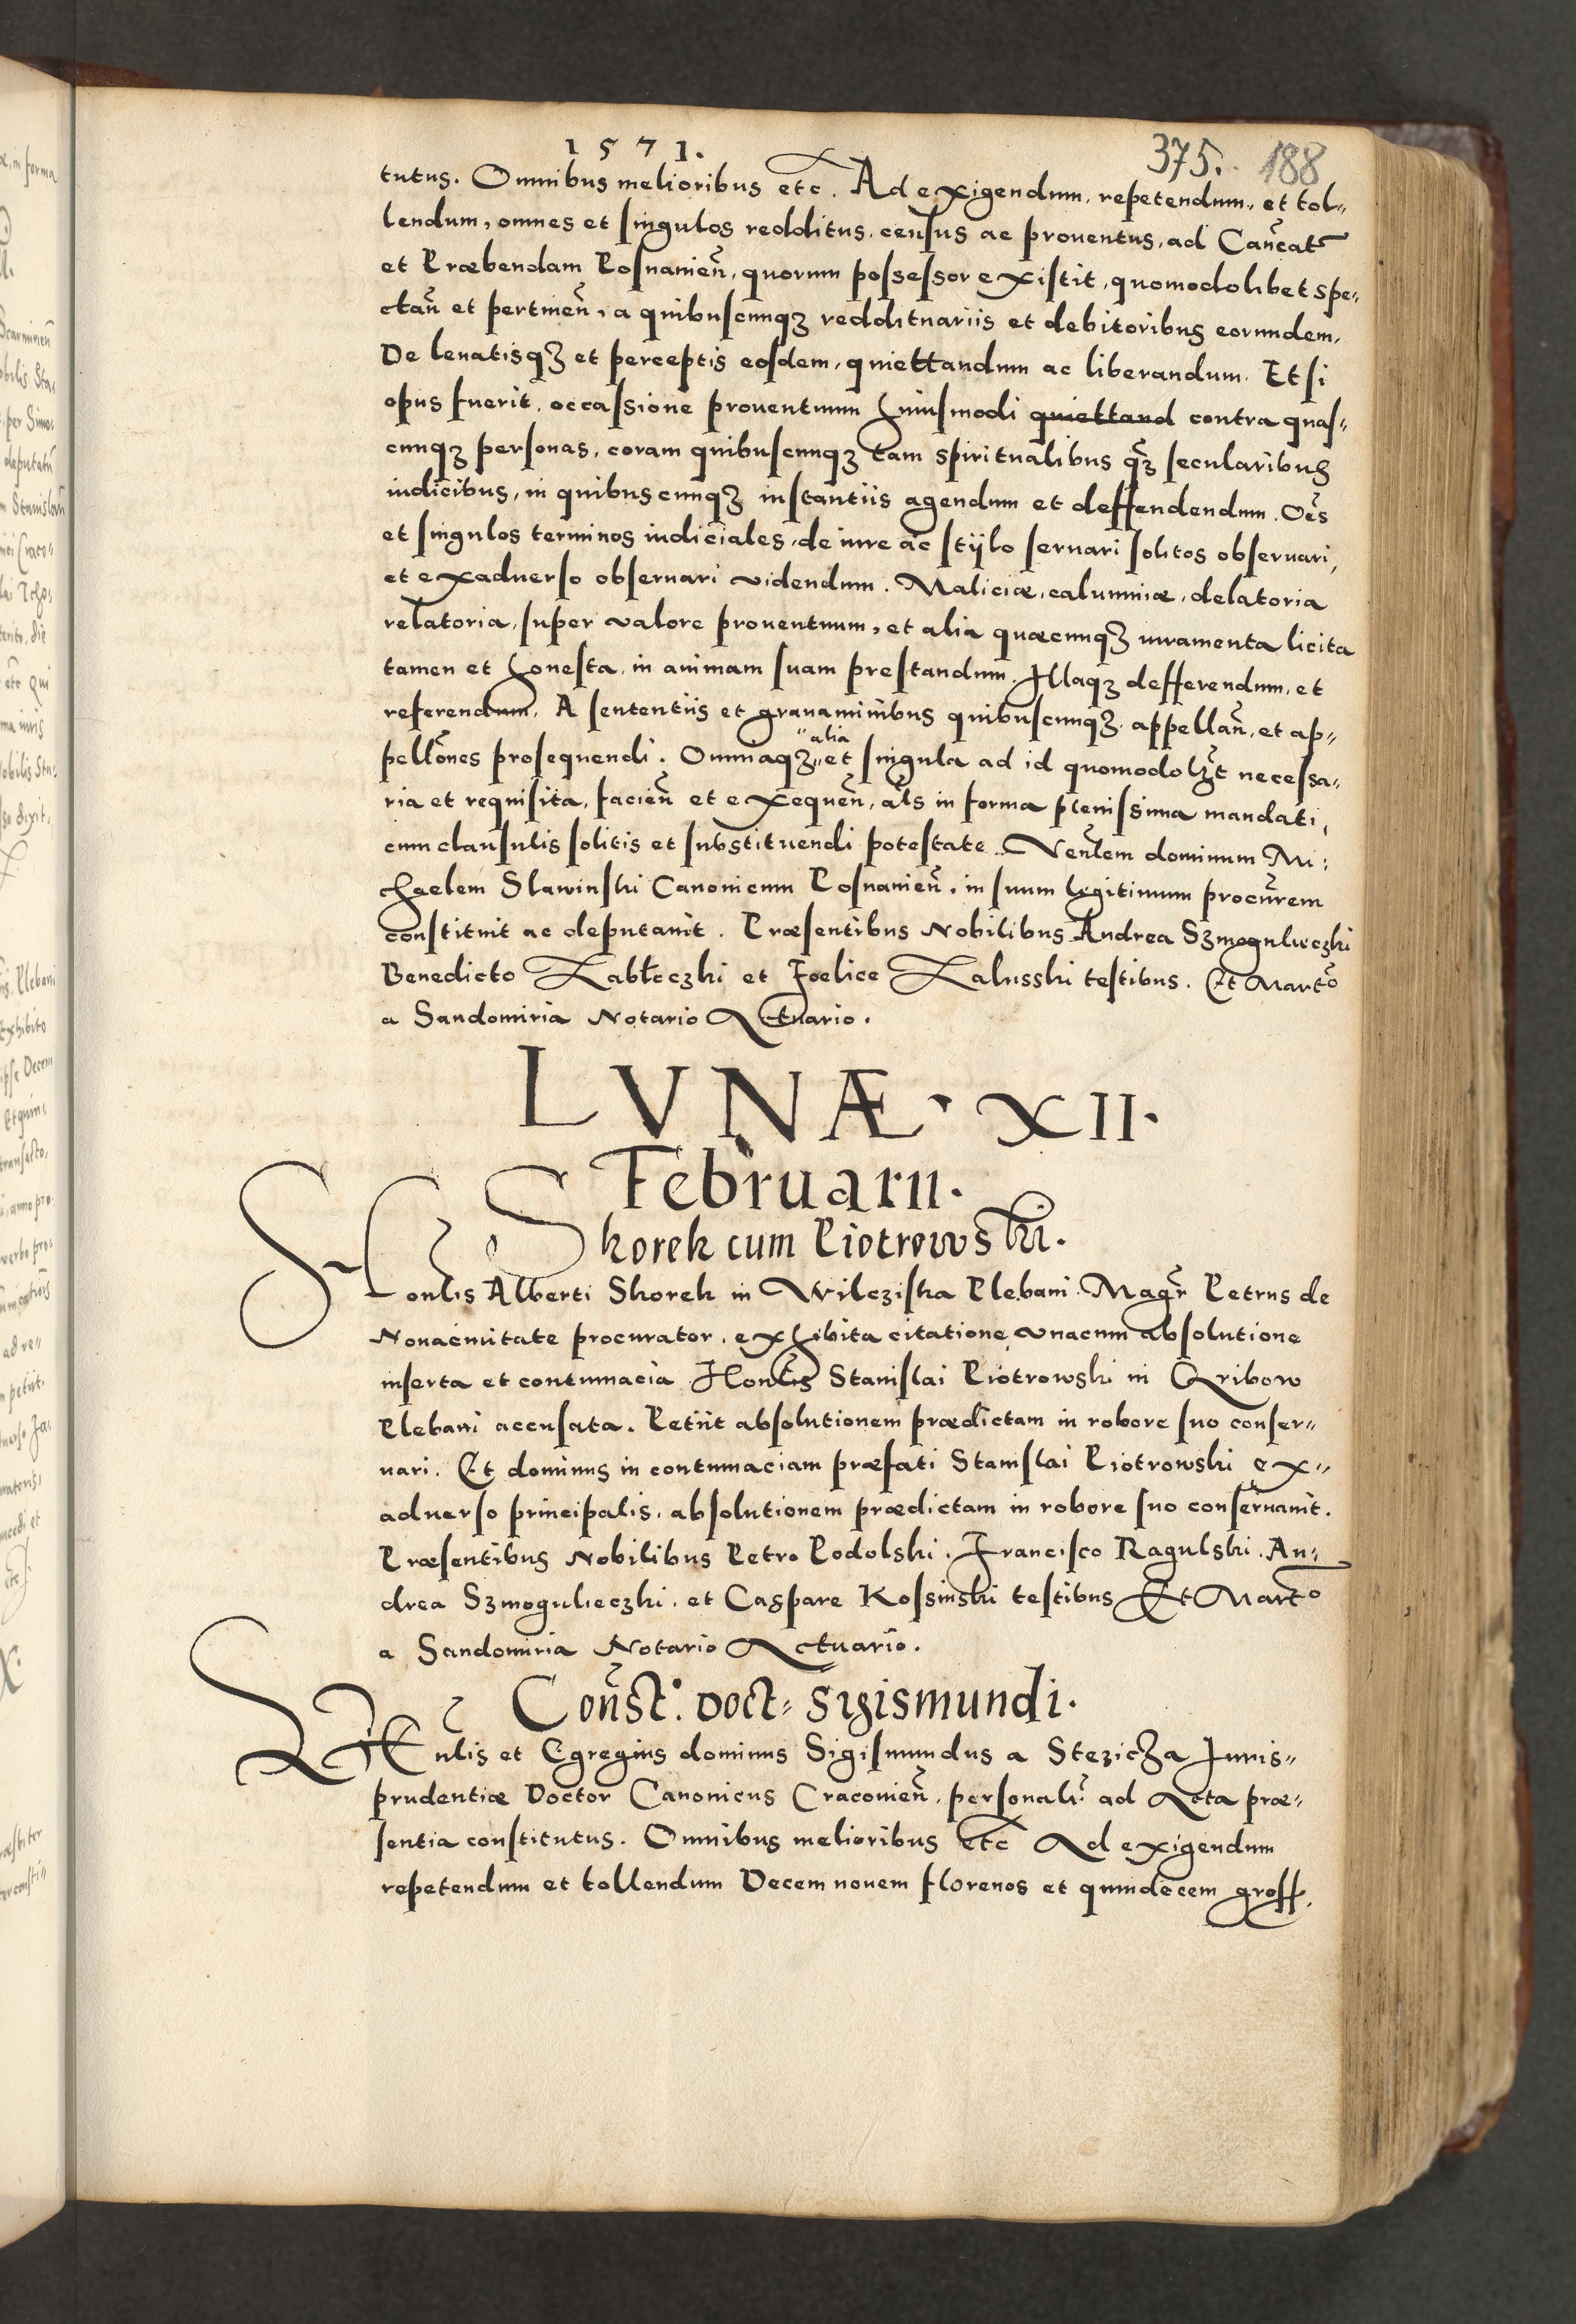 1571.
375. 188
tutus. Omnibus melioribus etc. Ad exigendum, repetendum, et tol„
lendum, omnes et singulos redditus, census ac prouentus, ad Cancat̃
et Præbendam Posnanień, quorum possessor existit, quomodolibet spe„
ctań et pertineń, a quibuscunqꝫ reddituariis et debitoribus eorundem.
De leuatisqꝫ et perceptis eosdem, quiettandum ac liberandum. Et si
opus fuerit, occassione prouentuum huiusmodi quiettand contra quas„
cunqꝫ personas, coram quibuscunqꝫ tam spiritualibus qꝫ̃ secularibus
iudicibus, in quibuscunqꝫ instantiis agendum et deffendendum. Oẽs
et singulos terminos iudiciales, de iure ac stylo seruari solitos obseruari,
et exaduerso obseruari videndum. Maliciæ, calumniæ, delatoria
relatoria, super valore prouentuum, et alia quæcunqꝫ iuramenta licita
tamen et honesta, in animam suam prestandum. Illaqꝫ defferendum, et
referendum. A sententiis et grauaminibus quibuscunqꝫ appellań, et ap„
„alia
pellões prosequendi. Omniaqꝫ„ et singula ad id quomodolꝫt necessa„
ria et requisita, facień et exequeń, als̃ in forma plenissima mandati,
cum clausulis solitis et substituendi potestate. Veñlem dominum Mi:
chaelem Slawinski Canonicum Posnanień, in suum legitimum procũrem
constituit ac deputauit. Præsentibus Nobilibus Andrea Szmogulieczki
Benedicto Zabłeczki et Foelice Zalusski testibus. Et Marto
a Sandomiria Notario Actuario.
LVNÆ · XII·
Februarii.
Skorek cum Piotrowski.
Honlis Alberti Skorek in Wilcziska Plebani Magr̃ Petrus de
Nouaciuitate procurator, exhibita citatione vnacum absolutione
inserta et contumacia Honlis Stanislai Piotrowski in Gribow
Plebani accusata. Petiit absolutionem prædictam in robore suo conser„
uari. Et dominus in contumaciam præfati Stanislai Piotrowski ex„
aduerso principalis, absolutionem prædictam in robore suo conseruauit.
Præsentibus Nobilibus Petro Podolski. Francisco Ragulski. An„
drea Szmogulieczki, et Caspare Kossinski testibus Et Marto
a Sandomiria Notario Actuario.
Const̃o. Doct„ Sigismundi.
VEnlis et Egregius dominus Sigismundus a Stezicza Iuris„
prudentiæ Doctor Canonicus Cracouień, personalr̃ ad Acta præ„
sentia constitutus. Omnibus melioribus etc Ad exigendum
repetendum et tollendum Decem nouem florenos et quindecem gross.